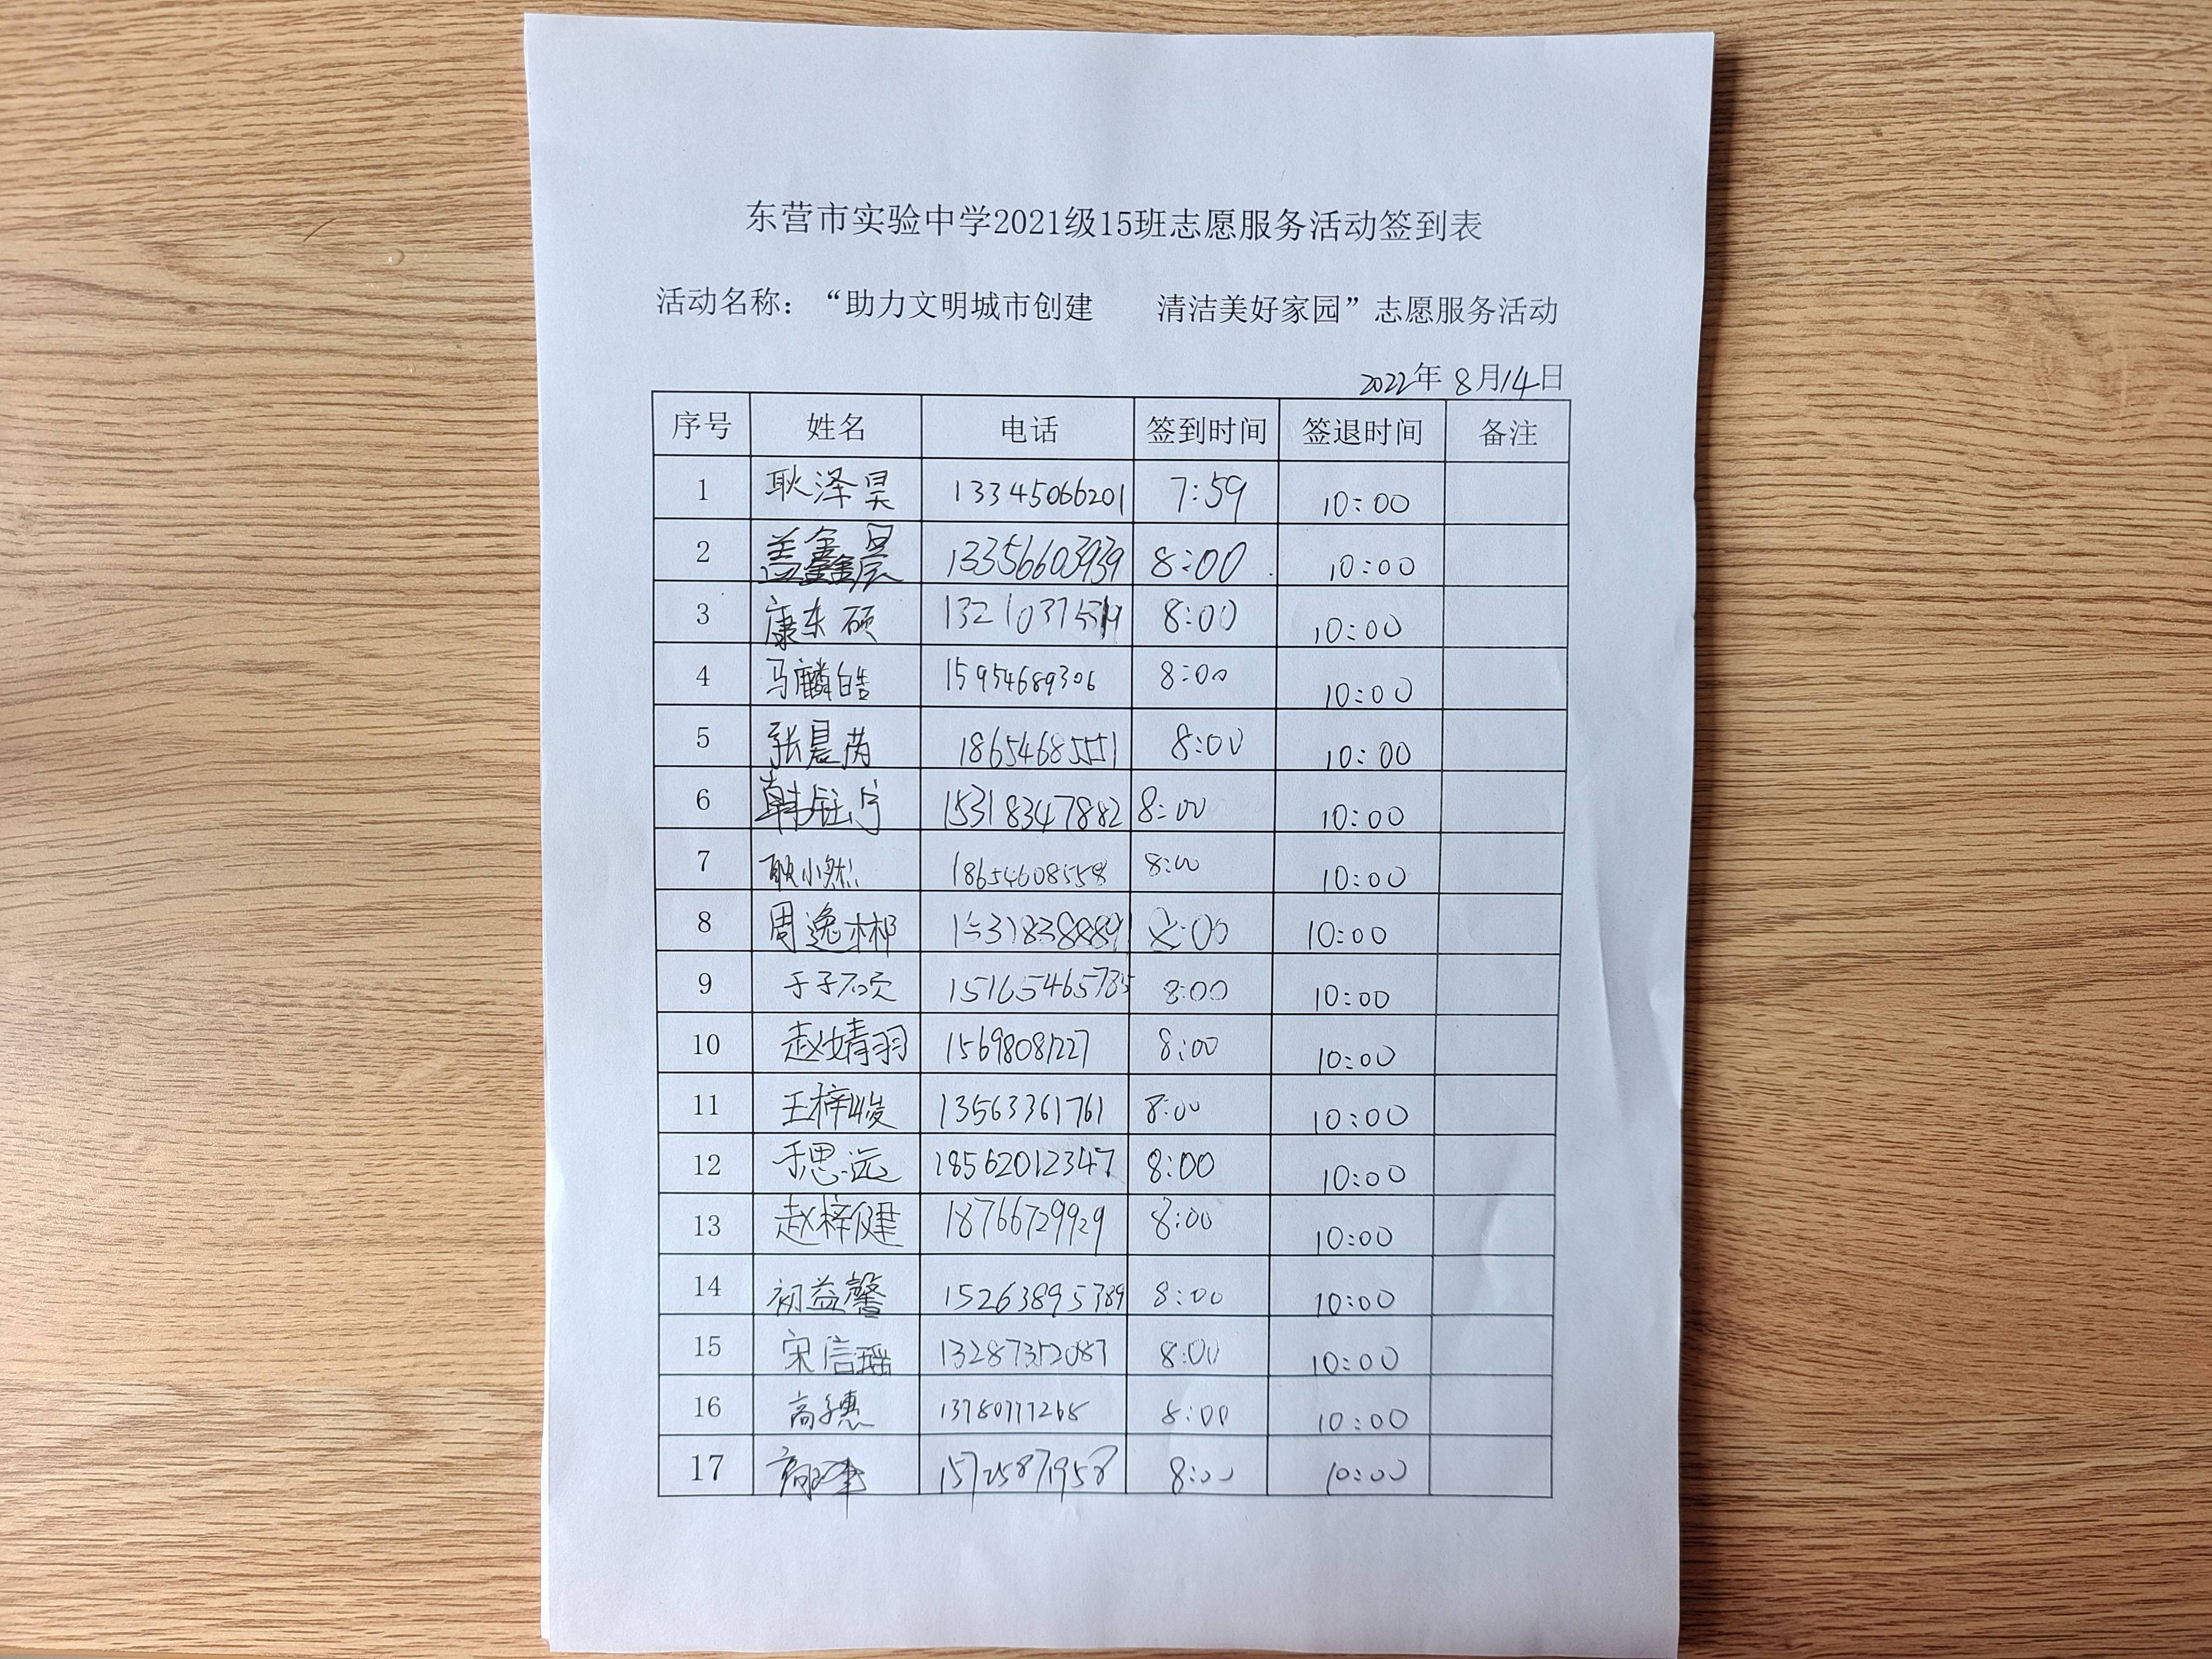 东营市实验中学2021级15班志愿服务活动签到表
活动名称：“助力文明城市创建 清洁美好家园”志愿服务活动
2022年 8月14日
序号 姓名 电话 签到时间 签退时间 备注
1 耿泽昊 13345066201 7:59 10:00
2 盖鑫晨 13356603939 8:00 10:00
3 康东硕 8:00 10:00
4 马麟皓 15954689306 8:00 10:00
5 张晨芮 18654685551 8:00 10:00
6 韩钰宁 15318347882 8:00 10:00
7 耿小然 18654608558 8:00 10:00
8 周逸彬 8:00 10:00
9 于子硕 15165465785 8:00 10:00
10 赵婧羽 15698081227 8:00 10:00
11 王梓峻 13563361761 8:00 10:00
12 于思远 18562012347 8:00 10:00
13 赵梓健 18766729929 8:00 10:00
14 初益馨 15263895789 8:00 10:00
15 宋信瑶 13287352087 8:00 10:00
16 高子惠 13780777268 8:00 10:00
17 15725871958 8:00 10:00